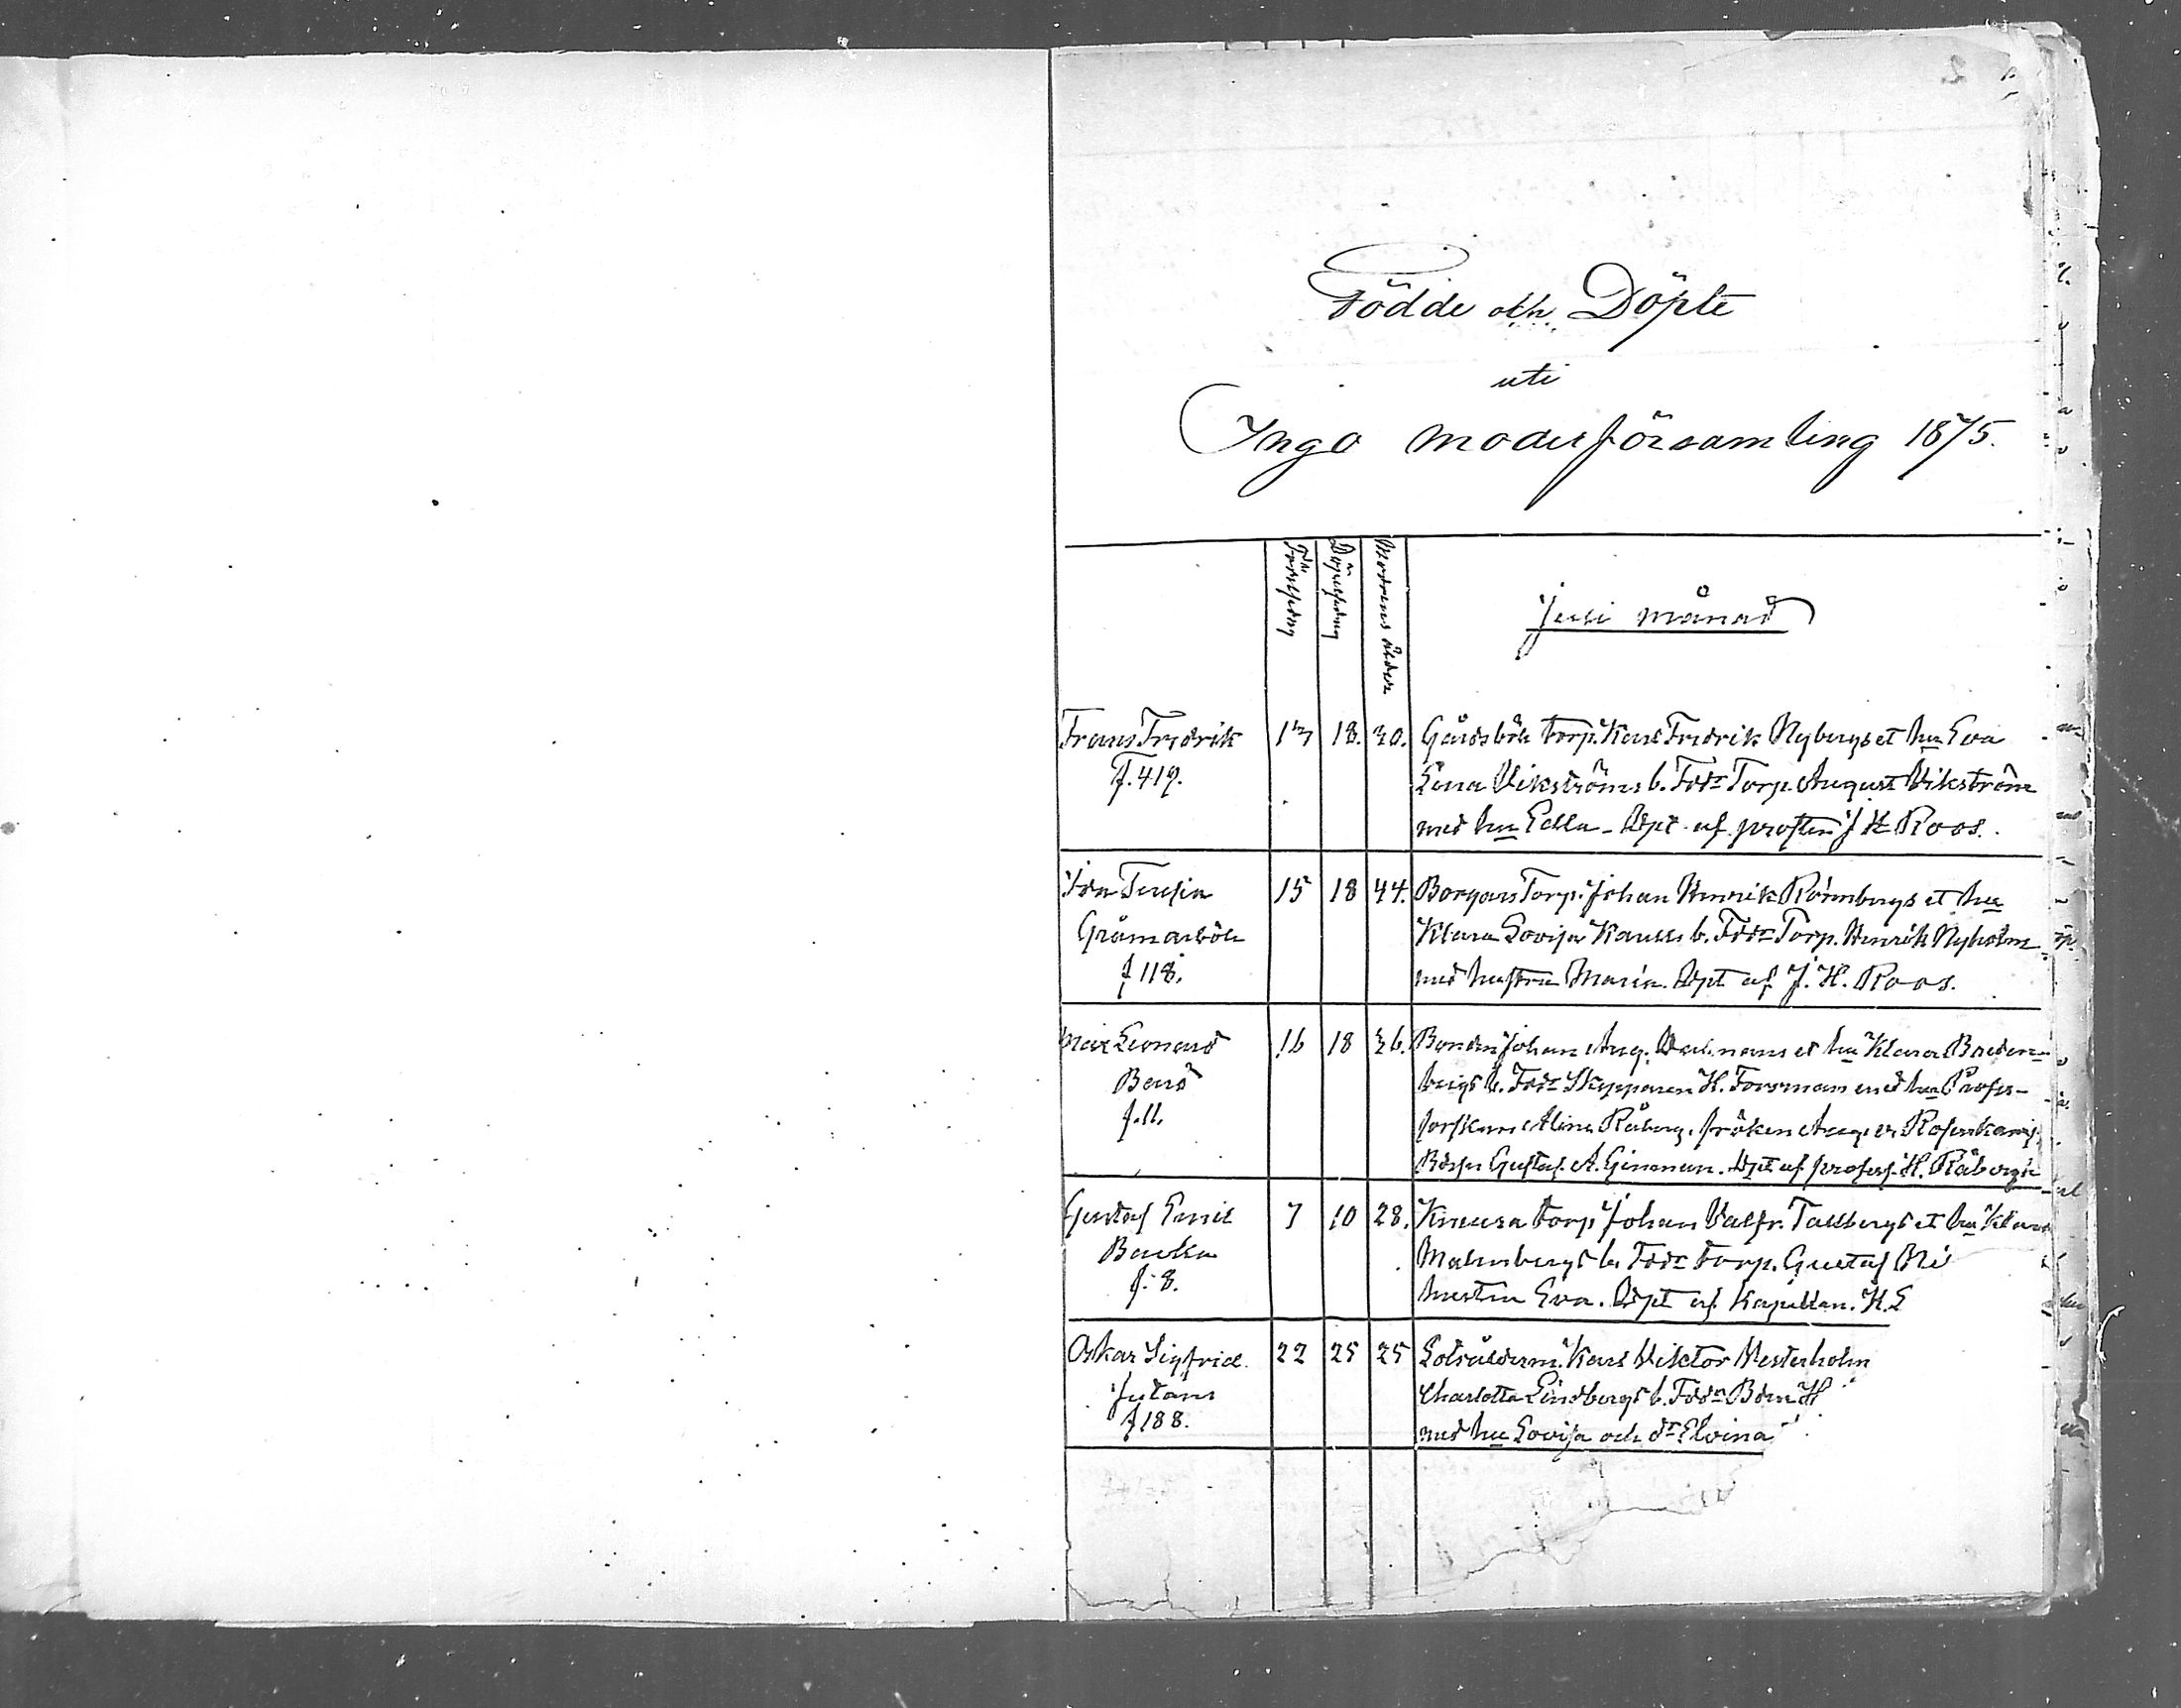 2
Födde och Döpte
uti
Ingo moderförsamling 1875.
Födelsedag
Döpelsedag
Modrens ålder
Juli månad
Frans Fredrik
f. 419.
13 18. 30.
Gårdsböle torp. Karl Fredrik Nybergs et hu Eva
Lena Vikströms b. Fddr Torp. August Vikström
med hu Edla - Döpt af prosten J H Roos.
Ida Teresia
Gråmarböle
f 118.
15 18 44.
Borgars Torp. Johan Henrik Rönnbergs et hu
Klara Lovisa Karlss b. Fddr Torp. Henrik Nyholm
med hustru Maria. Döpt af J. H. Roos.
Leonard
Barö
f. 11.
16 18 36.
Bonden Johan Aug. et hu Klara Breden-
bergs b. Fddr Skepparen H. Forsman med hu Profes-
sorskan Alina Råberg, fröken
Gustaf A. Ginman. Döpt af profess. H. Råbergh
Gustaf Emil
Backa
f. 8.
7 10 28.
Knusa torp Johan Valfr. Tallbergs et hu Klara
Malmbergs b. Fddr torp. Gustaf
hustru Eva. Döpt af Kapellan. K. E
Oskar Sigfrid.
Jutans
f 188.
22 25 25
Lotsålderm. Karl Viktor Westerholm
Charlotta Lindbergs b. Fddr Bdn H
med hu Lovisa och dr Elvina